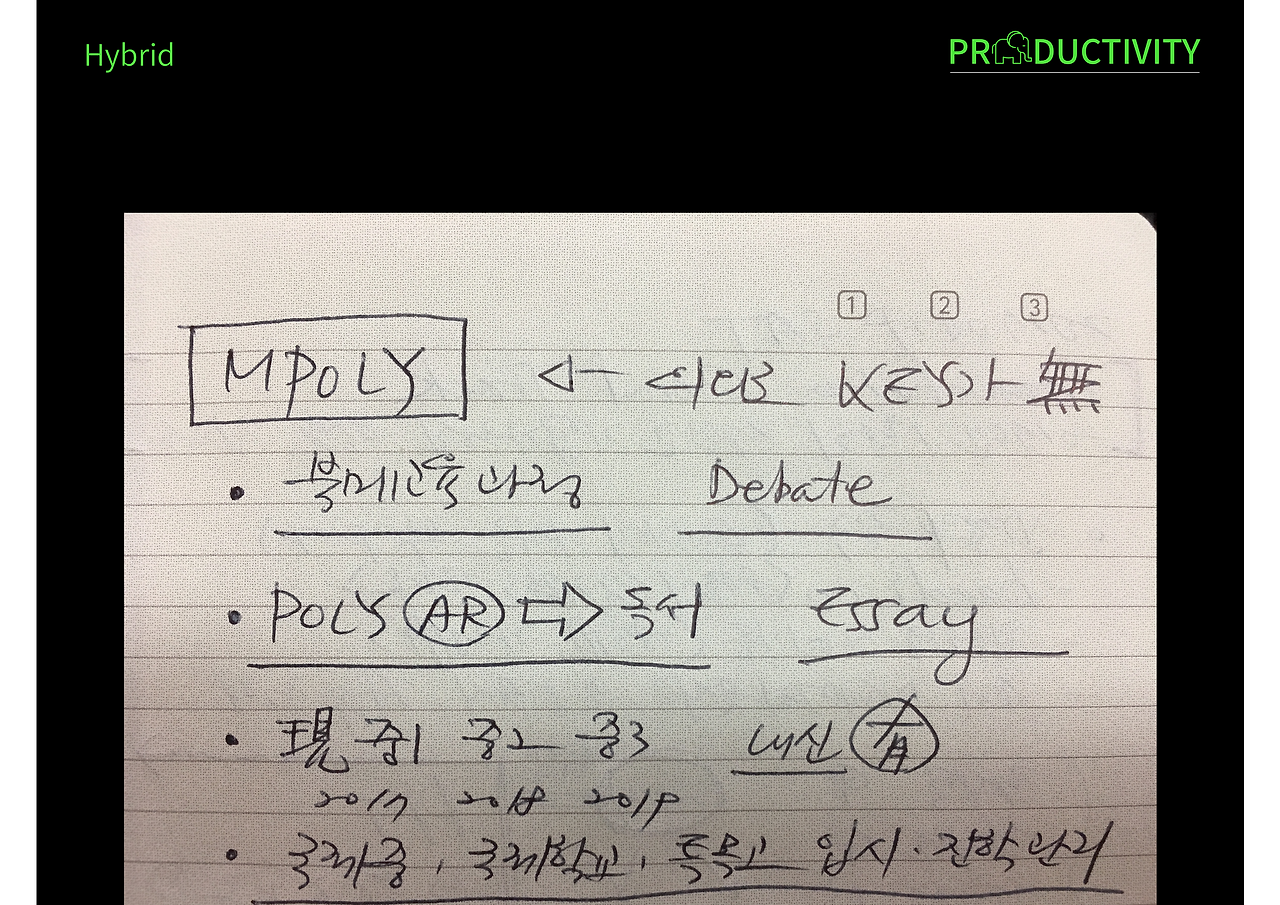 Hybrid
PRODUCTIVITY
1 2 3
MPOLY ← 無
• 북미교육과정 Debate
• POLY AR ⇨ 독서 Essay
• 現 중1 중2 중3 내신 有
2017 2018 2019
• 국제중, 국제학교, 특목고 입시·진학관리